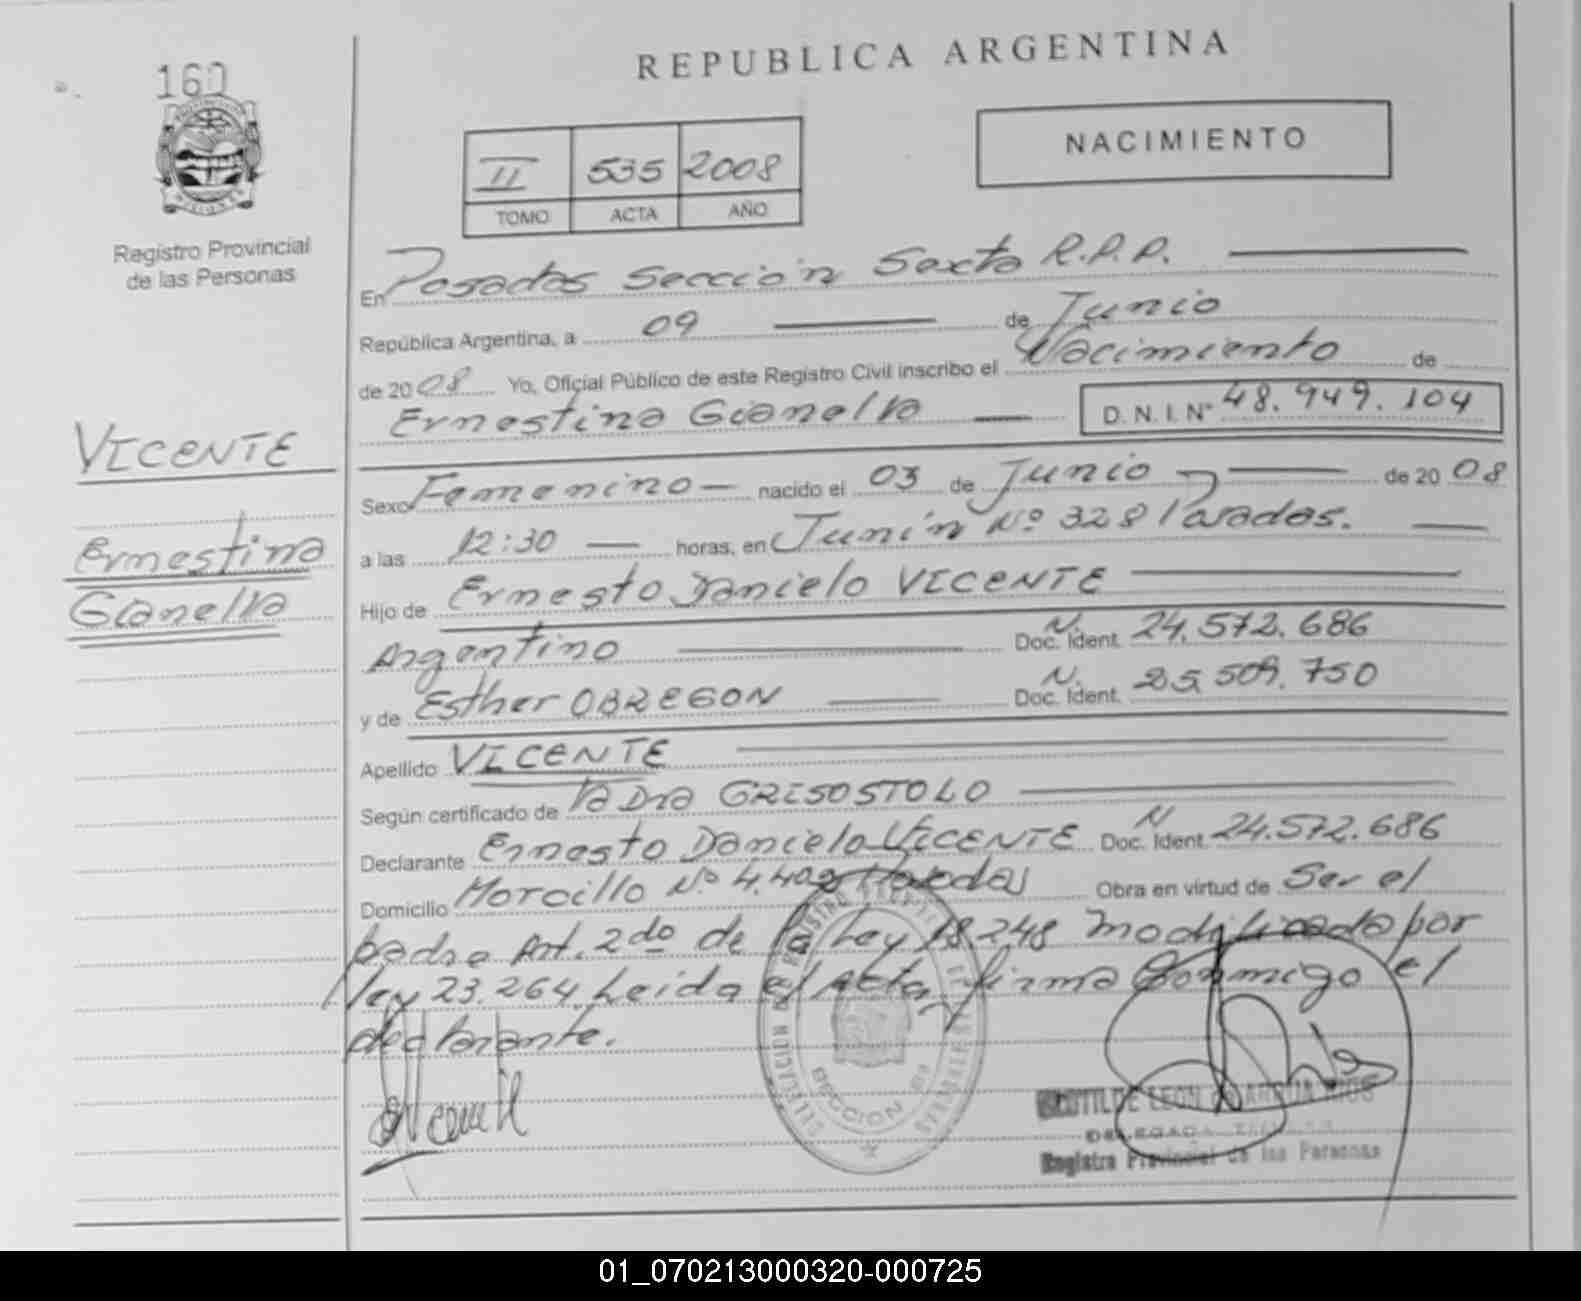 160
REPUBLICA ARGENTINA
NACIMIENTO
II 535 2008
TOMO ACTA AÑO
Registro Provincial
de las Personas
En Posadas Sección Sexta R.P.P.
República Argentina, a 09 de Junio
de 2008 Yo, Oficial Público de este Registro Civil inscribo el Nacimiento de
Ernestina Gianella D.N.I. Nº 48.949.104
VICENTE
Ernestina
Gianella
Sexo Femenino nacido el 03 de Junio de 2008
a las 12:30 horas, en Junín Nº 328 Posadas.
Hijo de Ernesto Danielo VICENTE
Argentino N. Doc. Ident. 24.572.686
y de Esther OBREGON N. Doc. Ident. 25.509.750
Apellido VICENTE
Según certificado de GRISOSTOLO
Declarante Ernesto Danielo VICENTE N Doc. Ident. 24.572.686
Domicilio Morcillo Nº Obra en virtud de Ser el
padre Art. 2do de la Ley 18.248 modificado por
ley 23.264. Leida el Acta, firma conmigo el
declarante.
SECCION
LEON
DELEGADA
Registro Provincial de las Personas
01_070213000320-000725